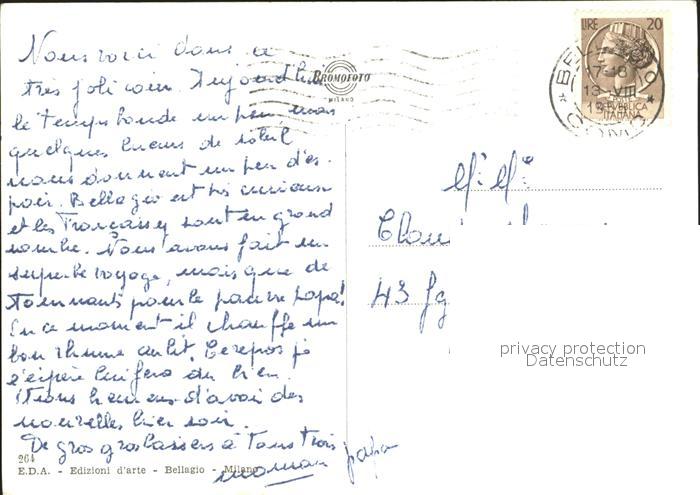 Nous voici dans ce
très joli coin. Aujourd'hui
le temps boude un peu, mais
quelques lueurs de soleil
nous donnent un peu d'es-
poir. Bellagio est très curieux
et les Français y sont en grand
nombre. Nous avons fait un
superbe voyage, mais que de
tournants pour le pauvre papa!
En ce moment il chauffe un
bon rhume au lit. Ce repos je
l'espère lui fera du bien.
heureux d'avoir des
nouvelles hier soir.
De gros gros baisers à tous trois
maman papa
264
E.D.A. - Edizioni d'arte - Bellagio - Milano
BROMOFOTO
MILANO
LIRE 20
REPVBBLICA
ITALIANA
BELLAGIO
13 VIII
COMO
43
privacy protection
Datenschutz